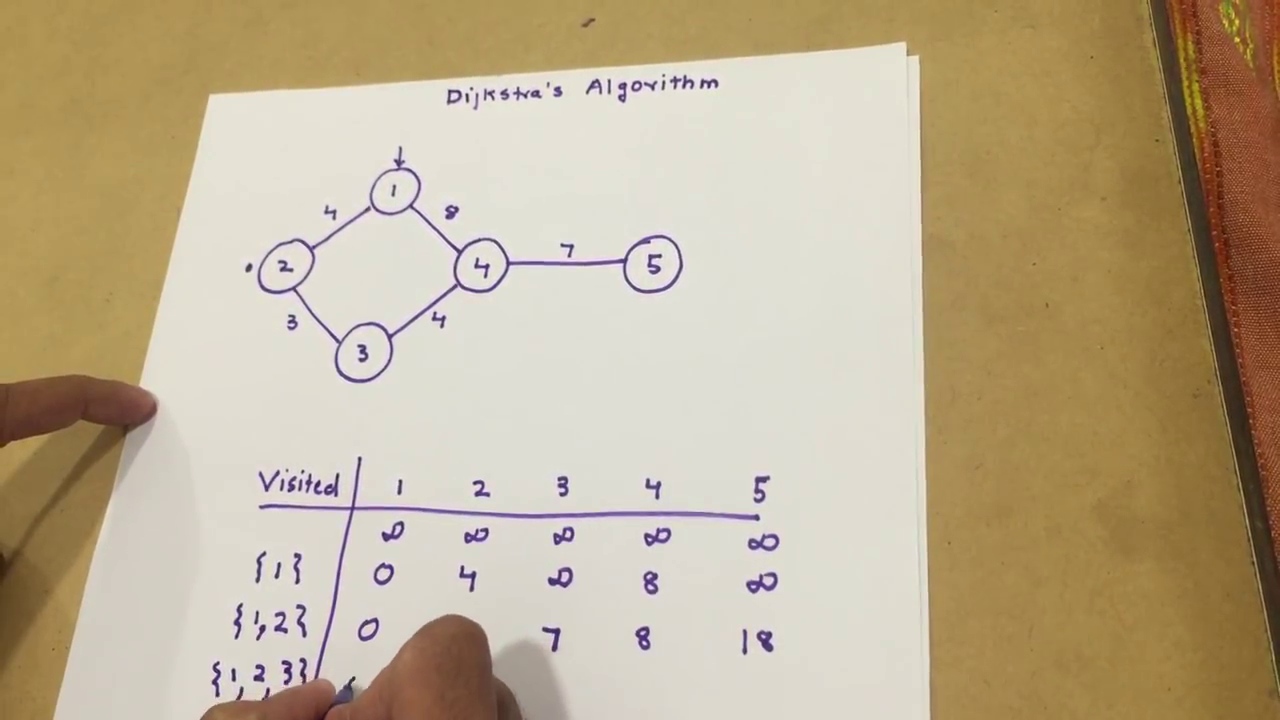 Dijkstra's Algorithm
1
4 8
2 4 7 5
3 4
3
Visited 1 2 3 4 5
∞ ∞ ∞ ∞ ∞
{1} 0 4 ∞ 8 ∞
{1,2} 0 7 8 18
{1,2,3}